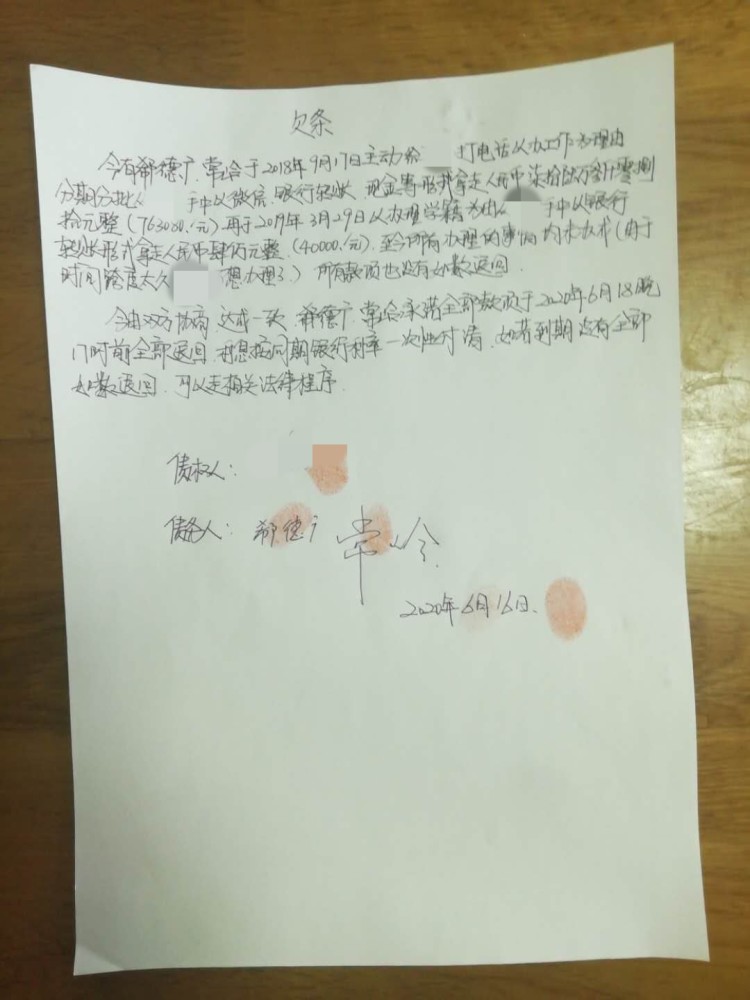 欠条
今有郗德广、常哈于2018年9月17日主动给 打电话以办工作为理由
分期分批从 手中以微信、银行转账、现金等形式拿走人民币柒拾陆万叁仟零捌
拾元整(763080./元)再于2019年3月29日以办理学籍为由从 手中以银行
转账形式拿走人民币肆万元整.(40000./元).至今所有办理的事情均未办成(由于
时间跨度太久 想办理了)所有款项也没有如数退回.
今由双方协商达成一致.郗德广、常哈承诺全部款项于2020年6月18晚
17时前全部退回.利息按同期银行利率一次性付清.如若到期没有全部
如数退回.可以走相关法律程序.
债权人:
债务人: 郗德广 常
2020年6月16日.